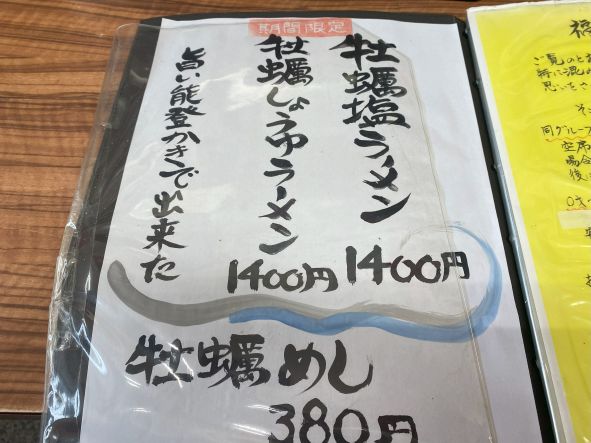 期間限定
牡蠣塩ラーメン
1400円
牡蠣しょうゆラーメン
1400円
旨い能登かきで出来た
牡蠣めし
380円
ご覧のと
特に混
思いをさ
同グループ
空席
場合
後に